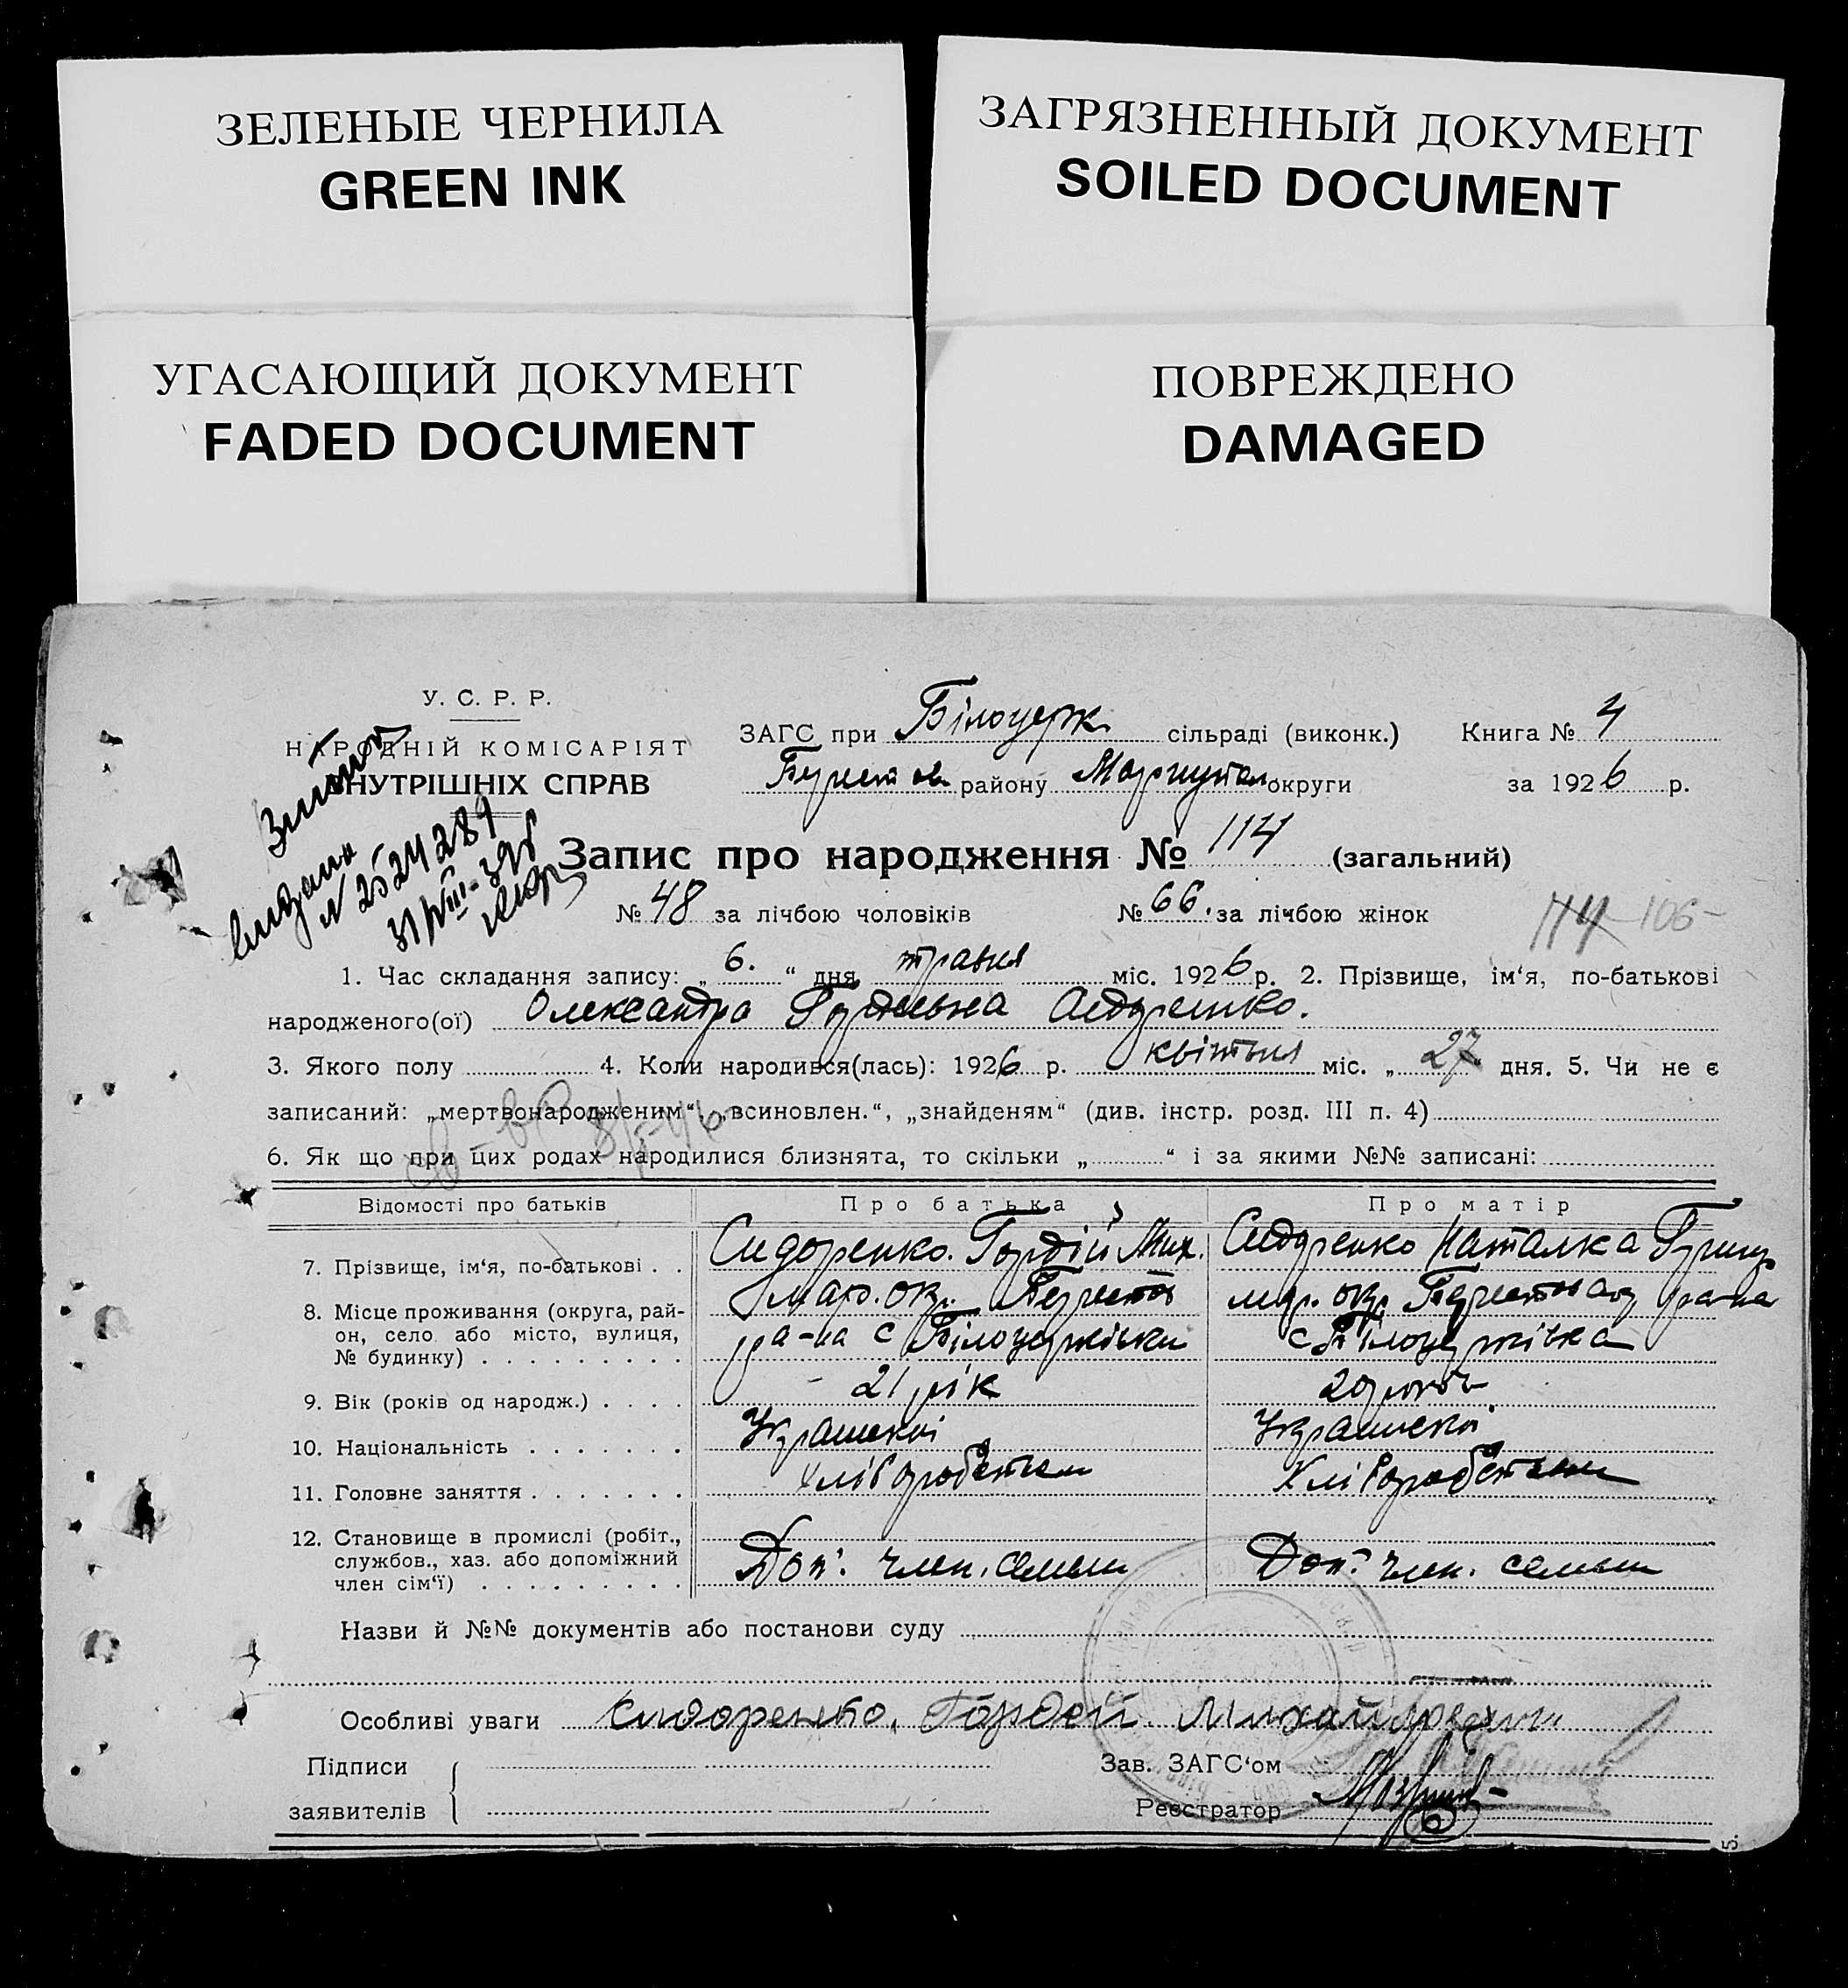 ЗЕЛЕНЫЕ ЧЕРНИЛА
GREEN INK
ЗАГРЯЗНЕННЫЙ ДОКУМЕНТ
SOILED DOCUMENT
УГАСАЮЩИЙ ДОКУМЕНТ
FADED DOCUMENT
ПОВРЕЖДЕНО
DAMAGED
У. С. Р. Р.
НАРОДНІЙ КОМІСАРІЯТ
ВНУТРІШНІХ СПРАВ
ЗАГС при Білоцерк. сільраді (виконк.) Книга № 4
району округи за 1926 р.
Запис про народження № 114 (загальний)
№ 48 за лічбою чоловіків № 66. за лічбою жінок
114 106
№ 2524289
1. Час складання запису: „ 6. “ дня травня міс. 1926 р. 2. Прізвище, ім‘я, по-батькові
народженого(ої) Олександра Сидоренко.
3. Якого полу 4. Коли народився(лась): 1926 р. квітня міс. „ 27 дня. 5. Чи не є
записаний: „мертвонародженим“, „всиновлен.“, „знайденям“ (див. інстр. розд. III п. 4)
6. Як що при цих родах народилися близнята, то скільки „ “ і за якими №№ записані:
Відомості про батьків Про батька Про матір
7. Прізвище, ім‘я, по-батькові . . Сидоренко. Гордій Мих. Сидоренко Наталка Григ
8. Місце проживання (округа, рай- мар. ок.
он, село або місто, вулиця, с Білоцерківки с Білоцерківка
№ будинку)
9. Вік (років од народж.) . . . . 21 рік 20 років
10. Національність
11. Головне заняття
12. Становище в промислі (робіт.,
службов., хаз. або допоміжний
член сім‘ї) Доп. член. семьи Доп. член. семьи
Назви й №№ документів або постанови суду
Особливі уваги Сидоренко, Гордей Михайлович
Підписи Зав. ЗАГС‘ом
заявителів Реєстратор
5.